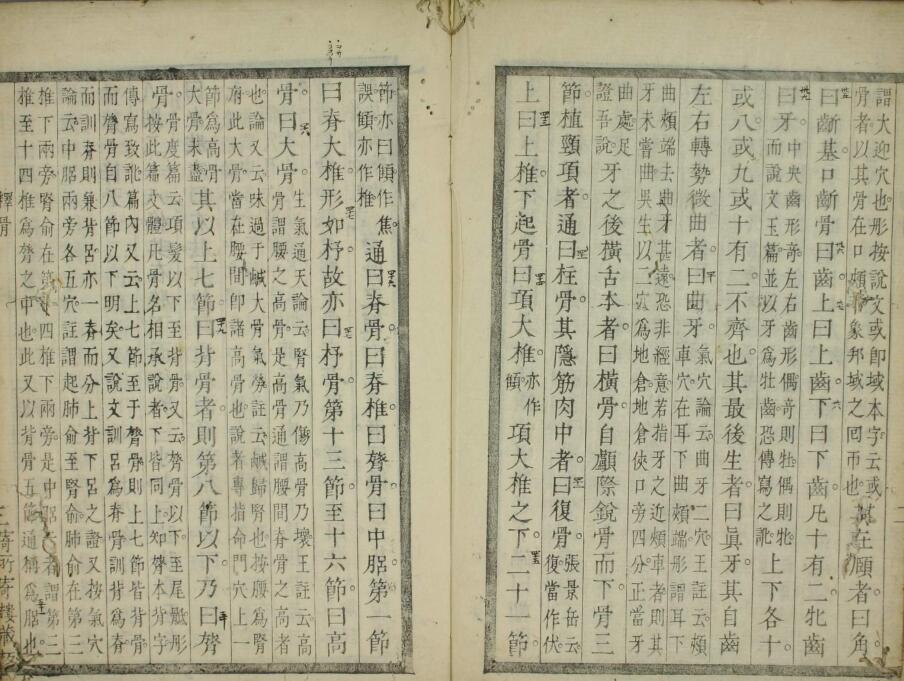 謂大迎穴也彤按說文或即域本字云或
骨者以其骨在口頰象邦域之囘帀也
其在頤者曰角
曰齗基口齗骨曰齒上曰上齒下曰下齒凡十有二牝齒
曰牙
中央齒形奇左右齒形偶奇則牡偶則牝
而說文玉篇並以牙爲牡齒恐傳寫之訛
上下各十
或八或九或十有二不齊也其最後生者曰眞牙其自齒
左右轉勢微曲者曰曲牙
氣穴論云曲牙二穴王註云頰
車穴在耳下曲頰端形謂耳下
曲頰端去曲牙甚遠恐非經意若指牙之近頰車者則其
牙未嘗曲與生以二穴爲地倉地倉俠口旁四分正當牙
曲處足
證吾說
牙之後橫舌本者曰橫骨自顱際銳骨而下骨三
節植頸項者通曰柱骨其隱筋肉中者曰復骨
張景岳云
復當作伏
上曰上椎下起骨曰項大椎
亦作
傾
項大椎之下二十一節
節亦曰傾作焦
誤傾亦作椎
通曰脊骨曰脊椎曰膂骨曰中䐃第一節
曰脊大椎形如杼故亦曰杼骨第十三節至十六節曰高
骨曰大骨
生氣通天論云腎氣乃傷高骨乃壞王註云高
骨謂腰之高骨是高骨通謂腰間脊骨之高者
也論又云味過于鹹大骨氣勞註云鹹歸腎也按腰爲腎
府此大骨當在腰間卽諸高骨也說者專指命門穴上一
節爲高骨
大骨未盡
其以上七節曰背骨者則第八節以下乃曰膂
骨
骨度篇云項髮以下至背骨又云膂骨以下至尾骶彤
按此篇文體凡骨名相承說者下皆同上知膂本背字
傳寫致訛篇內又云上七節至于膂骨則上七節皆背骨
而膂骨自八節以下明矣又說文訓呂爲脊骨訓背爲脊
而訓脊則兼背呂亦一脊而分上背下呂之證又按氣穴
論云中䐃兩旁各五穴註謂起肺俞至腎俞肺俞在第三
椎下兩旁腎俞在第十四椎下兩旁是中䐃者謂第三
椎至十四椎爲膂之中也此又以背骨五節通稱爲䐃也
釋骨